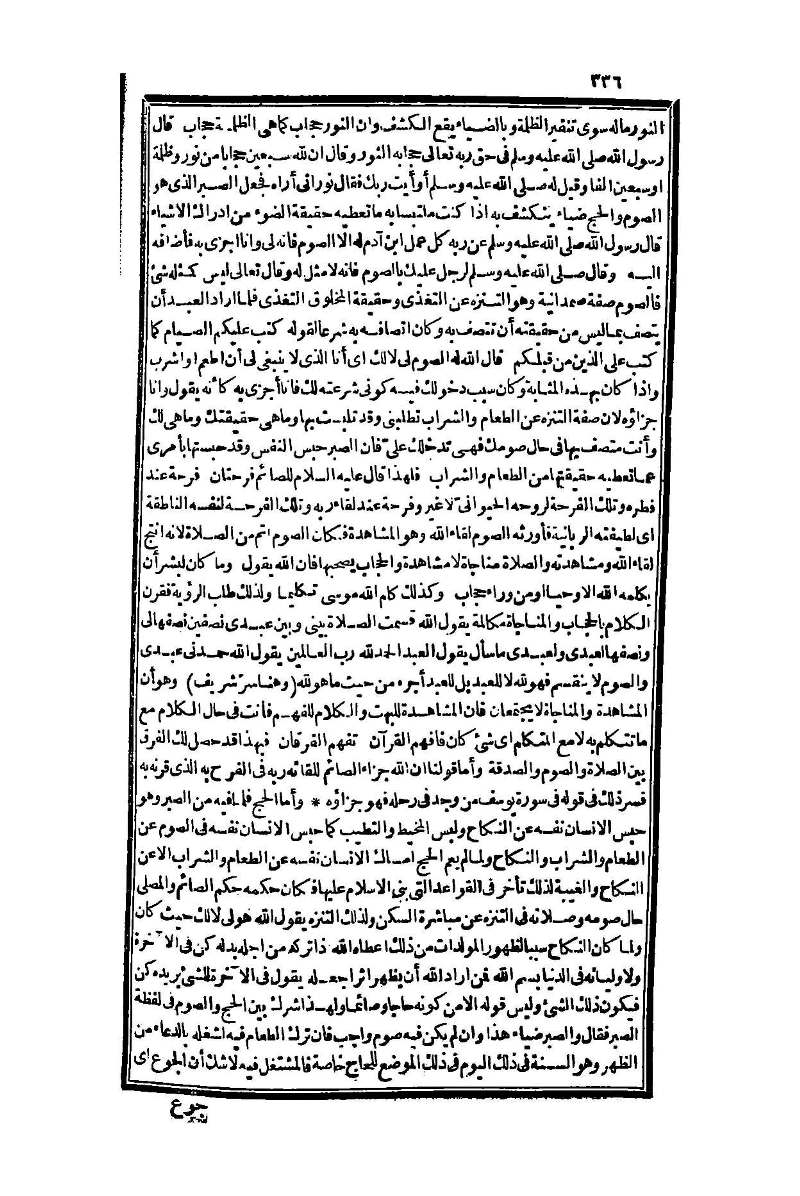 ٣٣٦
النور ماله سوى تنفير الظلمة وبالضياء يقع الكشف وان النور حجاب كما هى الظلمة حجاب قال
رسول الله صلى الله عليه وسلم فى حق ربه تعالى حجابه النور وقال ان لله سبعين حجابا من نور وظلمة
او سبعين الفا وقيل له صلى الله عليه وسلم أرأيت ربك فقال نورانى أراه فجعل الصبر الذى هو
الصوم والحج ضياء ينكشف به اذا كنت متلبسا به ما تعطيه حقيقة الضوء من ادراك الاشياء
قال رسول الله صلى الله عليه وسلم عن ربه كل عمل ابن آدم له الا الصوم فانه لى وانا اجزى به فأضافه
اليه وقال صلى الله عليه وسلم لرجل عليك بالصوم فانه لا مثل له وقال تعالى ليس كمثله شئ
فالصوم صفة صمدانية وهو التنزه عن التغذى وحقيقة المخلوق التغذى فلما اراد العبد أن
يتصف بما ليس من حقيقته أن يتصف به وكان اتصافه به شرعا لقوله كتب عليكم الصيام كما
كتب على الذين من قبلكم قال الله له الصوم لى لا لك اى أنا الذى لا ينبغى لى أن اطعم او اشرب
واذا كان بهذه المثابة وكان سبب دخولك فيه كونى شرعته لك فانا أجزى به كأنه يقول وانا
جزاؤه لان صفة التنزه عن الطعام والشراب تطلبنى وقد تلبست بها وما هى حقيقتك وما هى لك
وأنت متصف بها فى حال صومك فهى تدخلك علىّ فان الصبر حبس النفس وقد حبستها بأمرى
عما تعطيه حقيقتها من الطعام والشراب فلهذا قال عليه السلام للصائم فرحتان فرحة عند
فطره وتلك الفرحة لروحه الحيوانى لا غير وفرحة عند لقاء ربه وتلك الفرحة لنفسه الناطقة
اى لطيفته الربانية فأورثه الصوم لقاء الله وهو المشاهدة فكان الصوم اتم من الصلاة لانه انتج
لقاء الله ومشاهدته والصلاة مناجاة لا مشاهدة والحجاب يصحبها فان الله يقول وما كان لبشر أن
يكلمه الله الا وحيا او من وراء حجاب وكذلك كلم الله موسى تكليما ولذلك طلب الرؤية فقرن
الكلام بالحجاب والمناجاة مكالمة يقول الله قسمت الصلاة بينى وبين عبدى نصفين نصفها لى
ونصفها لعبدى ولعبدى ما سأل يقول العبد الحمد لله رب العالمين يقول الله حمدنى عبدى
والصوم لا ينقسم فهو لله لا للعبد بل للعبد أجره من حيث ما هو لله (وهنا سر شريف) وهو أن
المشاهدة والمناجاة لا يجتمعان فان المشاهدة للبهت والكلام للفهم فأنت فى حال الكلام مع
ما تتكلم به لا مع المتكلم اى شئ كان فافهم القرآن تفهم الفرقان فبهذا قد حصل لك الفرق
بين الصلاة والصوم والصدقة وأما قولنا ان الله جزاء الصائم للقائه ربه فى الفرح به الذى قرنه به
فسر ذلك فى قوله فى سورة يوسف من وجد فى رحله فهو جزاؤه * وأما الحج فلما فيه من الصبر وهو
حبس الانسان نفسه عن النكاح ولبس المخيط والتطيب كما حبس الانسان نفسه فى الصوم عن
الطعام والشراب والنكاح ولما لم يعم الحج امساك الانسان نفسه عن الطعام والشراب الا عن
النكاح والغيبة لذلك تأخر فى القواعد التى بنى الاسلام عليها فكان حكمه حكم الصائم والمصلى
حال صومه وصلاته فى التنزه عن مباشرة السكن ولذلك التنزه يقول الله هو لى لا لك حيث كان
ولما كان النكاح سببا لظهور المولدات من ذلك اعطاه الله اذا تركه من اجله بدله كن فى الآخرة
ولاوليائه فى الدنيا بسم الله لمن اراد الله أن يظهر اثرا جعله يقول فى الآخرة للشئ يريده كن
فيكون ذلك الشئ وليس قوله الا من كونه حاجا وصائما ولهذا شرك بين الحج والصوم فى لفظة
الصبر فقال والصبر ضياء هذا وان لم يكن فيه صوم واجب فان ترك الطعام فيه اشغله بالدعاء من
الظهر وهو السنة فى ذلك اليوم فى ذلك الموضع للحاج خاصة فالمشتغل فيه لا شك أن الجوع اى
جوع